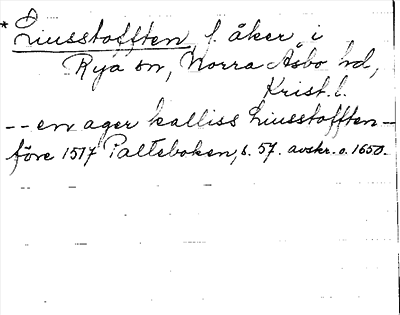 * Liusstofften, f. åker, i
Rya sn, Norra Åsbo hd,
Krist. l.
-- en ager kalliss Liusstofften --
före 1517 Palteboken, s. 57. avskr. o. 1650.